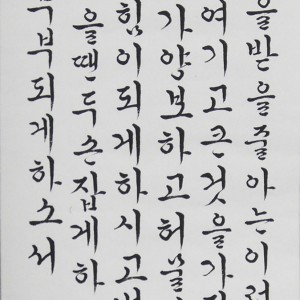 을받을줄아는이
여기고큰것을가
가양보하고허물
힘이되게하시고
을땐두손잡게하
부되게하소서